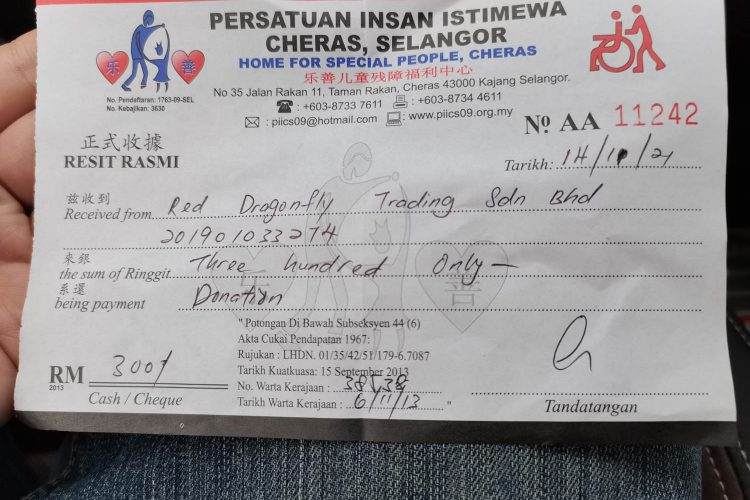 PERSATUAN INSAN ISTIMEWA
CHERAS, SELANGOR
HOME FOR SPECIAL PEOPLE, CHERAS
乐善儿童残障福利中心
乐 善
No. Pendaftaran: 1763-09-SEL
No. Kebajikan: 3630
No 35 Jalan Rakan 11, Taman Rakan, Cheras 43000 Kajang Selangor.
: +603-8733 7611 : +603-8734 4611
: piics09@hotmail.com : www.piics09.org.my
正式收據
RESIT RASMI
No AA 11242
Tarikh: 14/ /21
兹收到
Received from Red Dragonfly Trading Sdn Bhd
201901033274
來銀
the sum of Ringgit Three hundred Only —
系還
being payment Donation
乐 善
" Potongan Di Bawah Subseksyen 44 (6)
Akta Cukai Pendapatan 1967:
Rujukan : LHDN. 01/35/42/51/179-6.7087
Tarikh Kuatkuasa: 15 September 2013
No. Warta Kerajaan :
Tarikh Warta Kerajaan : 6/11/13 "
RM 300/
2013
Cash / Cheque
Tandatangan